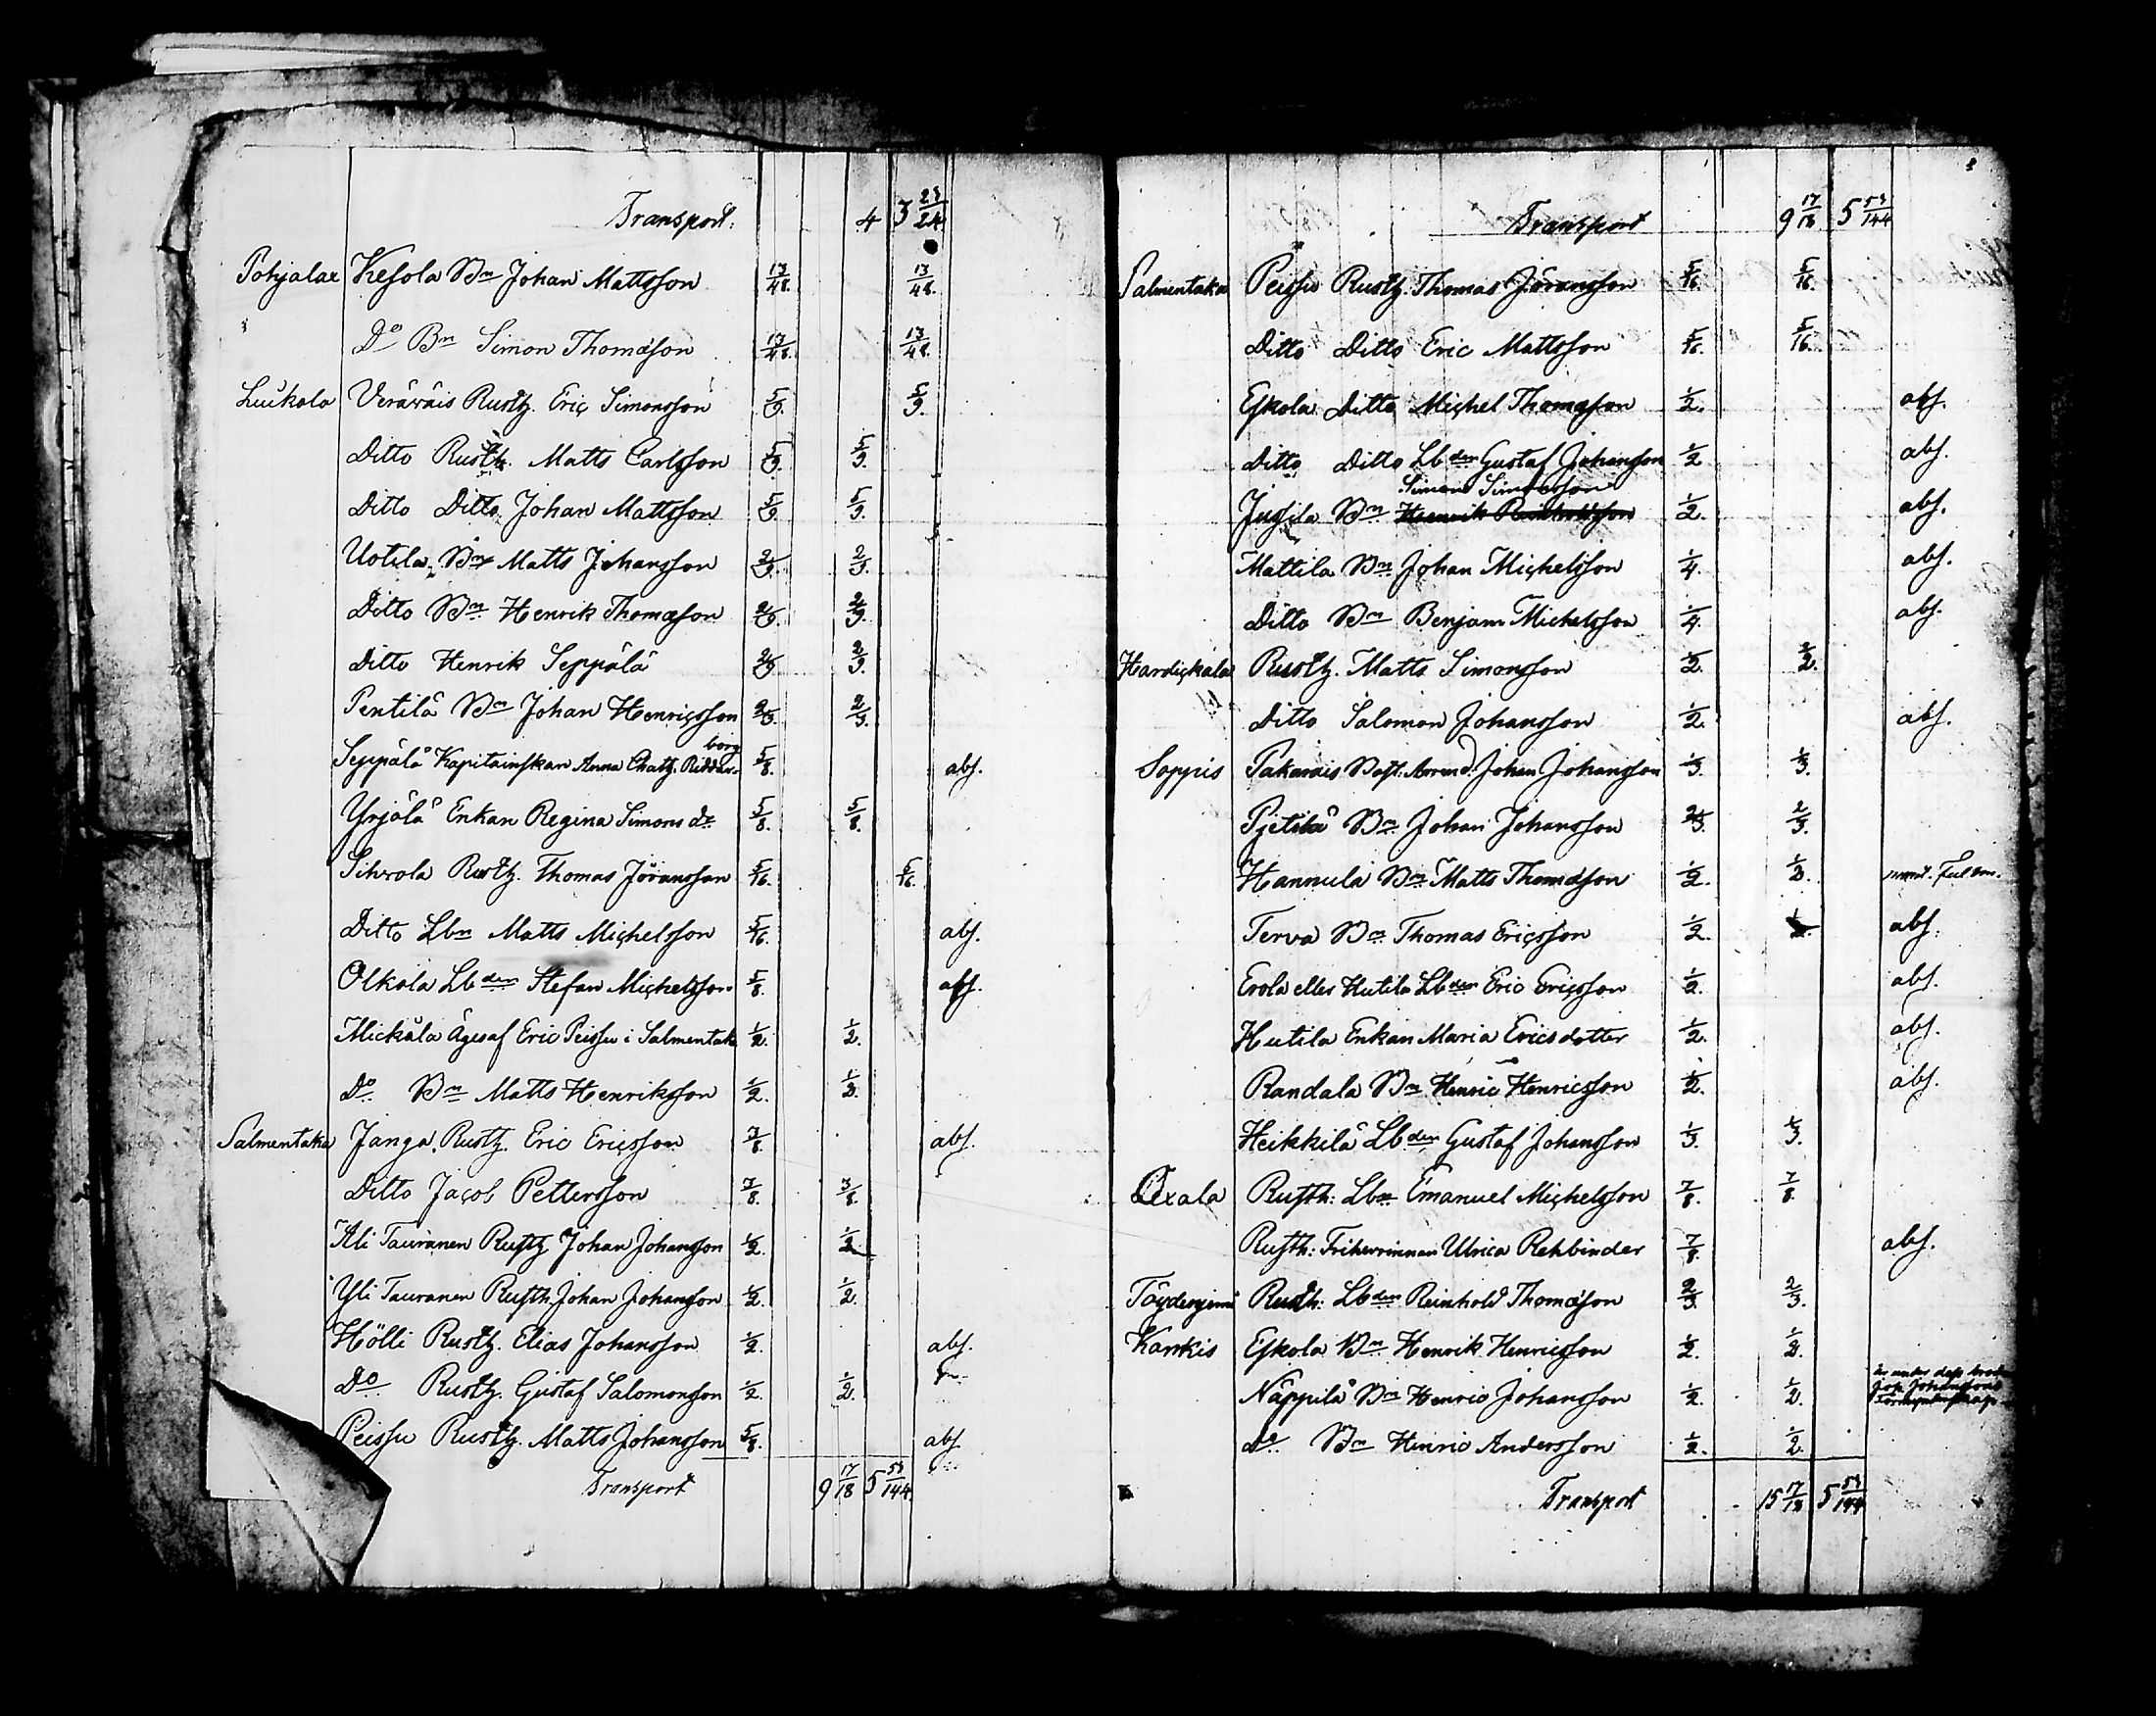 Transport. 4 3 23/24
Pohjalax Kesola Bn Johan Mattsson 13/48. 13/48.
Do Bn Simon Thomasson 13/48. 13/48.
Luukola Veräväis Rusth. Eric Simonsson 5/9. 5/9.
Ditto Rusth. Matts Carlsson 5/9. 5/9.
Ditto Ditto Johan Mattsson 5/9. 5/9.
Uotila Bn Matts Johansson 2/9. 2/9.
Ditto Bn Henrik Thomasson 2/9. 2/9.
Ditto Henrik Seppälä 2/9. 2/9.
Pentilä Bn Johan Henricsson 2/9. 2/9.
Seppälä Kapitainskan Anna Chatz. Ridderborg 5/8. abs.
Yrjälä Enkan Regina Simons dr 5/8. 5/8.
Sihvola Rusth. Thomas Jöransson 5/16. 5/16.
Ditto Lbn Matts Michelsson 5/16. abs.
Olkola Lbden Stefan Michelsson 5/8. abs.
Mickäla Äges af Eric Peissu i Salmentaka 1/2. 1/2.
Do Bn Matts Henriksson 1/2. 1/2.
Salmentaka Janga Rusth. Eric Ericsson 7/8. abs.
Ditto Jacob Pettersson 7/8. 7/8.
Ali Tauranen Rusth. Johan Johansson 1/2. 1/2.
Yli Tauranen Rusth. Johan Johansson 1/2. 1/2.
Hölli Rusth. Elias Johansson 1/2. abs.
Do Rusth. Gustaf Salomonsson 1/2. 1/2.
Peissu Rusth. Matts Johansson 5/8. abs
Transport 9 17/18 5 53/144.
Transport 9 17/18 5 53/144
Salmentaka Peissu Rusth. Thomas Jöransson 5/16. 5/16.
Ditto Ditto Eric Mattsson 5/16. 5/16.
Eskola Ditto Michel Thomasson 1/2. abs.
Ditto Ditto Lbden Gustaf Johansson 1/2 abs.
Simon Simonsson
Jussila Bn Henrik Reinholdsson 1/2. abs.
Mattila Bn Johan Michelsson 1/4. abs.
Ditto Bn Benjam Michelsson 1/4. abs.
Hardickala Rusth. Matts Simonsson 1/2. 1/2.
Ditto Salomon Johansson 1/2. abs.
Soppis Pakarais Bost. Arrend. Johan Johansson 1/3. 1/3.
Pjetilä Bn Johan Johansson 2/3. 2/3.
Hannula Bn Matts Thomasson 1/2. 1/2.
Terva Bn Thomas Ericsson 1/2. 1/2. abs.
Erola elles Hutila Lbden Eric Ericsson 1/2. abs.
Hutila Enkan Maria Ericsdotter 1/2. abs.
Randala Bn Henric Henricsson 1/2. abs.
Heikkilä Lbden Gustaf Johansson 1/3. 1/3.
Oexala Rusth: Lbn Emanuel Michelsson 7/8. 7/8
Rusth: Friherrinnan Ulrica Rehbinder 7/8. abs.
Rusth: Lbden Reinhold Thomasson 2/3. 2/3.
Kankis Eskola Bn Henrik Henricsson 1/2. 1/2.
Näppilä Bn Henric Johansson 1/2. 1/2.
do Bn Henric Andersson 1/2. 1/2
Transport 15 17/18 5 53/144